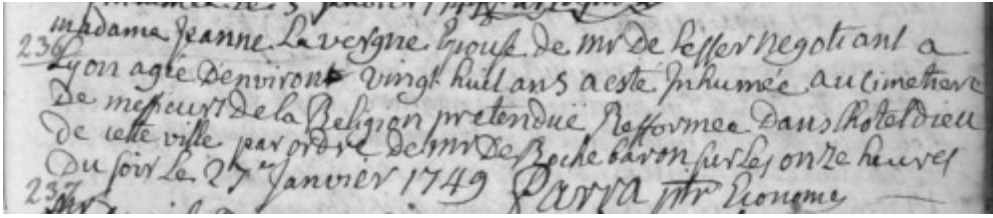 inhumée le 5 janvier 1749
236
madame Jeanne Lavergne Epouse de mr De Lesser negotiant a
Lyon agée D'environt vingt huit ans a esté Inhumée au Cimetiere
De messieurs de la Religion pretendüe Refformée Dans lhotel dieu
de cette ville par ordre de mr De Rochebaron sur les onze heures
Du soir Le 27 Janvier 1749 Parra ptr Econome
237
Mr